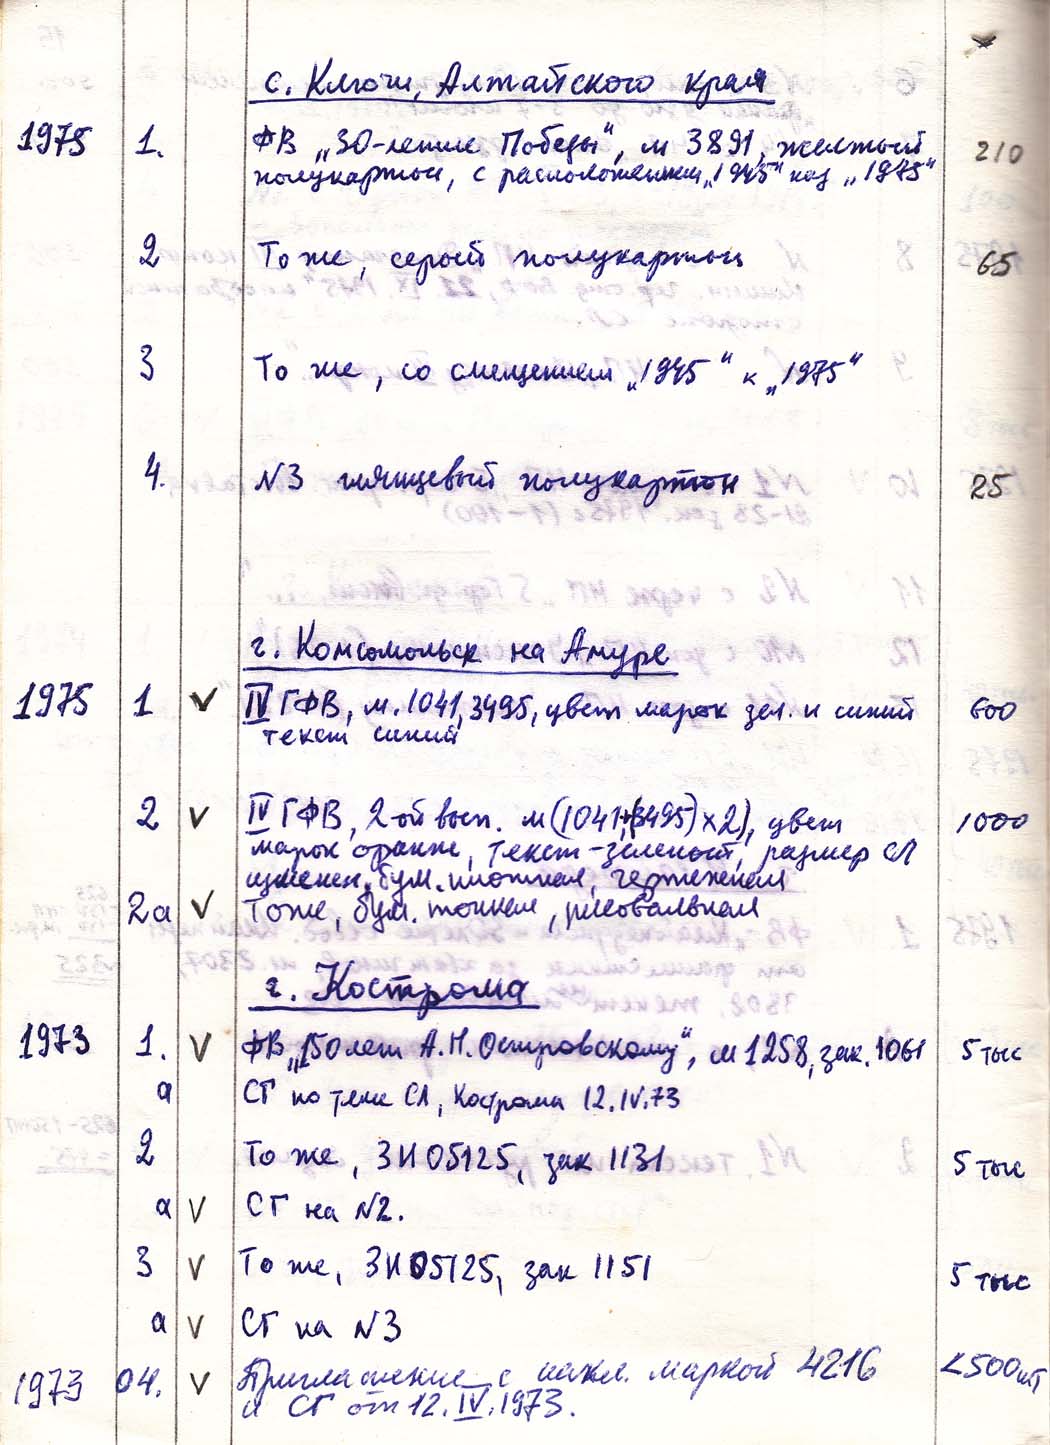 с. Ключи, Алтайского края
1975 1. ФВ „30-летие Победы", м 3891, желтый 210
полукартон, с расположением „1945" над „1975"
2 То же, серый полукартон 65
3 То же, со смещением „1945" к „1975"
4. N3 глянцевый полукартон 25
г. Комсомольск на Амуре
1975 1 V IV ГФВ, м. 1041, 3495, цвет марок зел. и синий 600
текст синий
2 V IV ГФВ, 2-ой вып. м (1041+3495)х2), цвет 1000
марок оранж, текст-зеленый, размер СЛ
изменен, бум. плотная, чертежная
2а V То же, бум. тонкая, рисовальная
г. Кострома
1973 1. V ФВ „150 лет А.Н. Островскому", м 1258, зак. 1061 5 тыс
а СГ по теме СЛ, Кострома 12.IV.73
2 То же, ЗИ 05125, зак 1131 5 тыс
а V СГ на N2.
3 V То же, ЗИ 05125, зак 1151 5 тыс
а V СГ на N3
1973 04. V Приглашение с накл. маркой 4216 <500 шт
и СГ от 12.IV.1973.